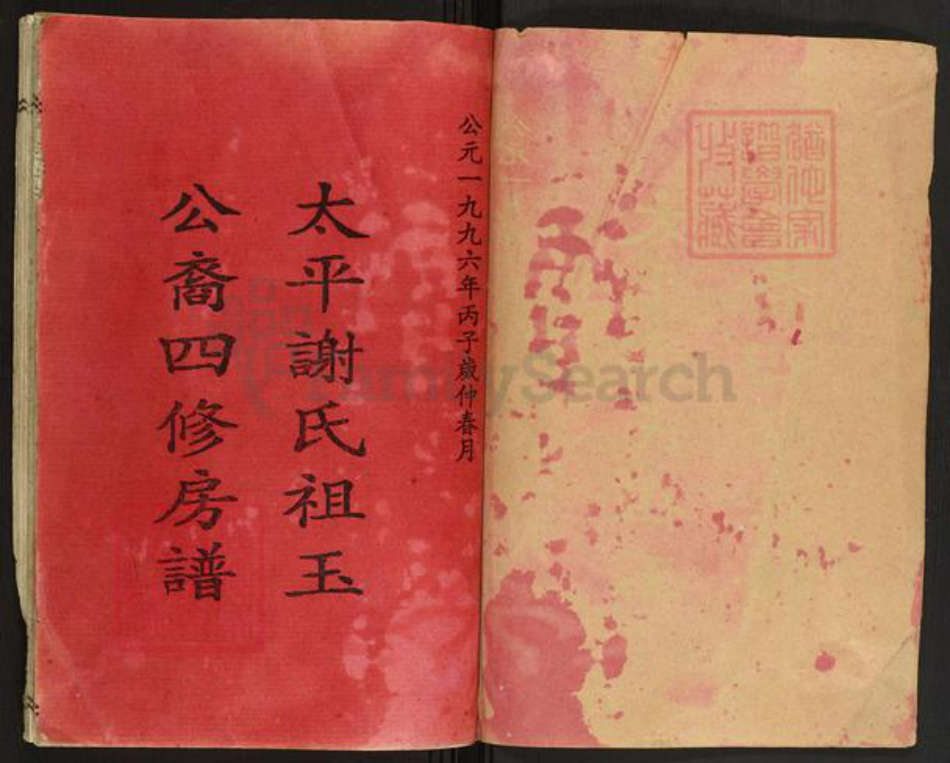 公元一九九六年丙子歲仲春月
太平謝氏祖玉
公裔四修房譜
FamilySearch